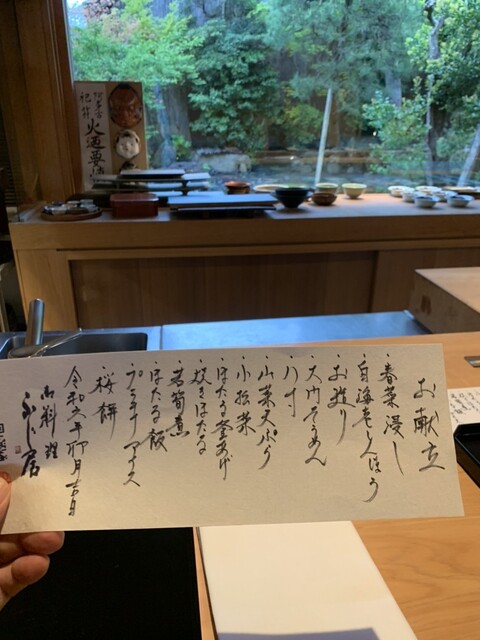 お献立
・春菜浸し
・白海老しんじょう
・お造り
・大門そうめん
・八寸
・山菜天ぷら
・小松菜
・ほたる釜あげ
・炊きほたる
・若筍煮
・ほたる飯
・プラチナアイス
・桜餅
令和六年卯月吉日
御料理
ふじ居
火迺要慎